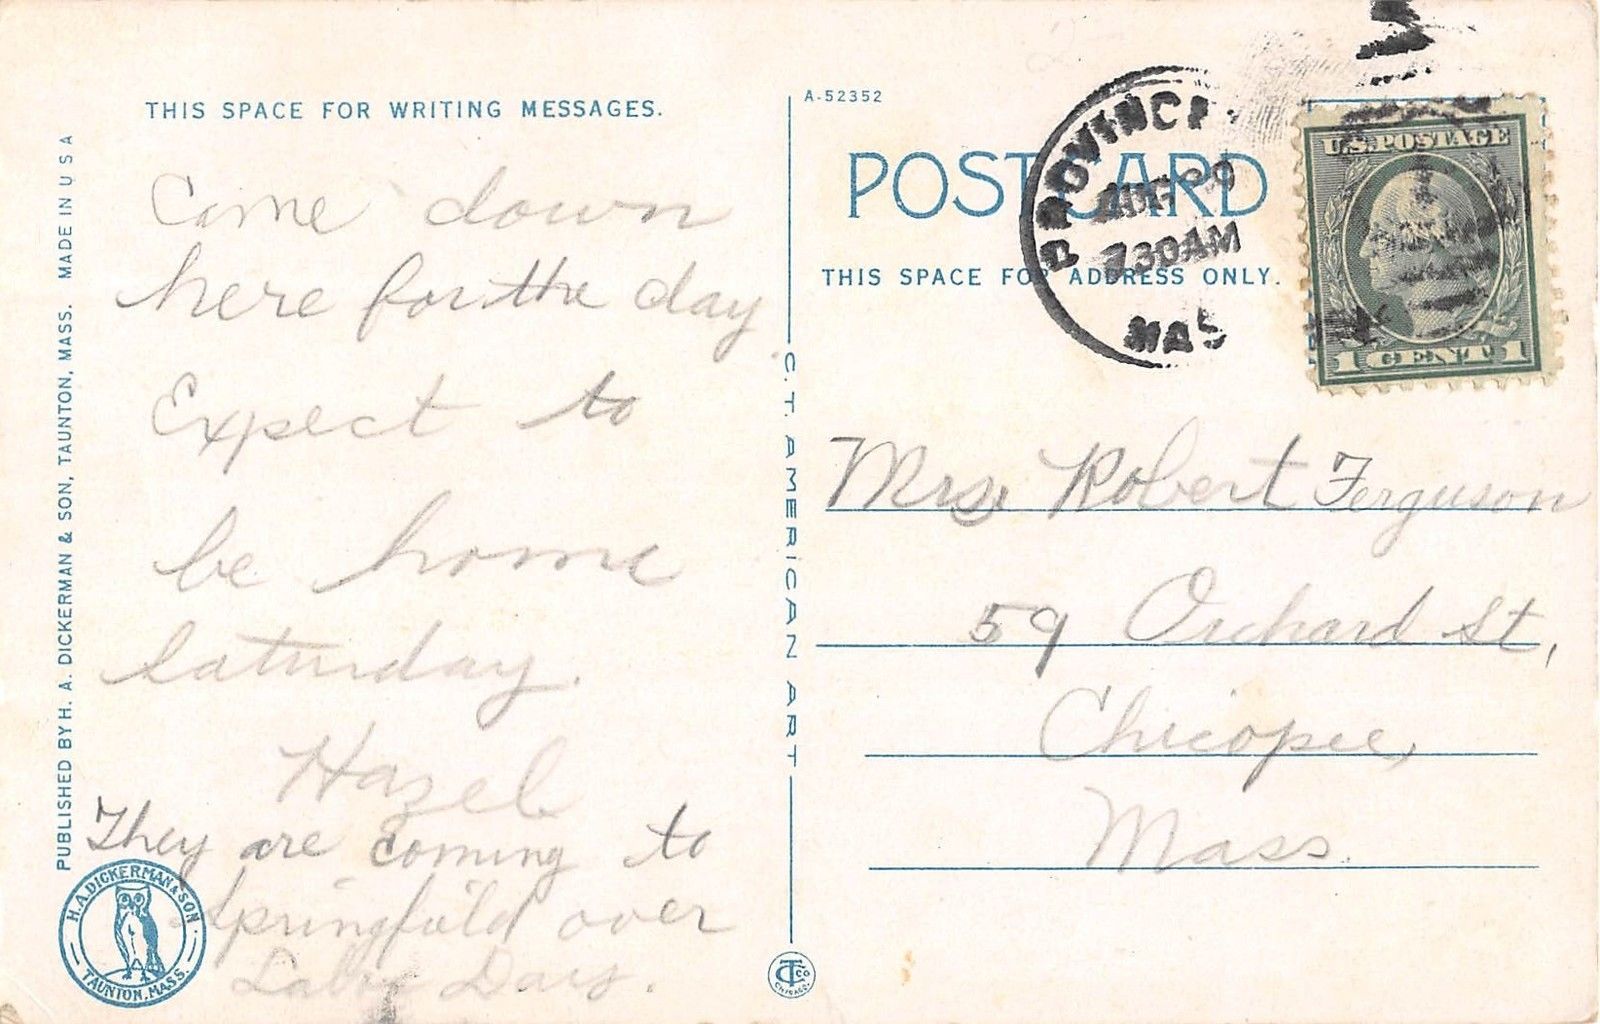 THIS SPACE FOR WRITING MESSAGES.
Came down
here for the day.
Expect to
be home
Saturday.
Hazel
They are coming to
Springfield over
Labor Day.
PUBLISHED BY H. A. DICKERMAN & SON, TAUNTON, MASS. MADE IN U S A
H.A. DICKERMAN & SON
TAUNTON, MASS.
C. T. AMERICAN ART
CT CO
CHICAGO
A-52352
POST CARD
THIS SPACE FOR ADDRESS ONLY.
PROVINCE
AUG 29
730AM
MAS
U.S. POSTAGE
1 CENT 1
Mrs. Robert Ferguson
59 Orchard St,
Chicopee,
Mass.